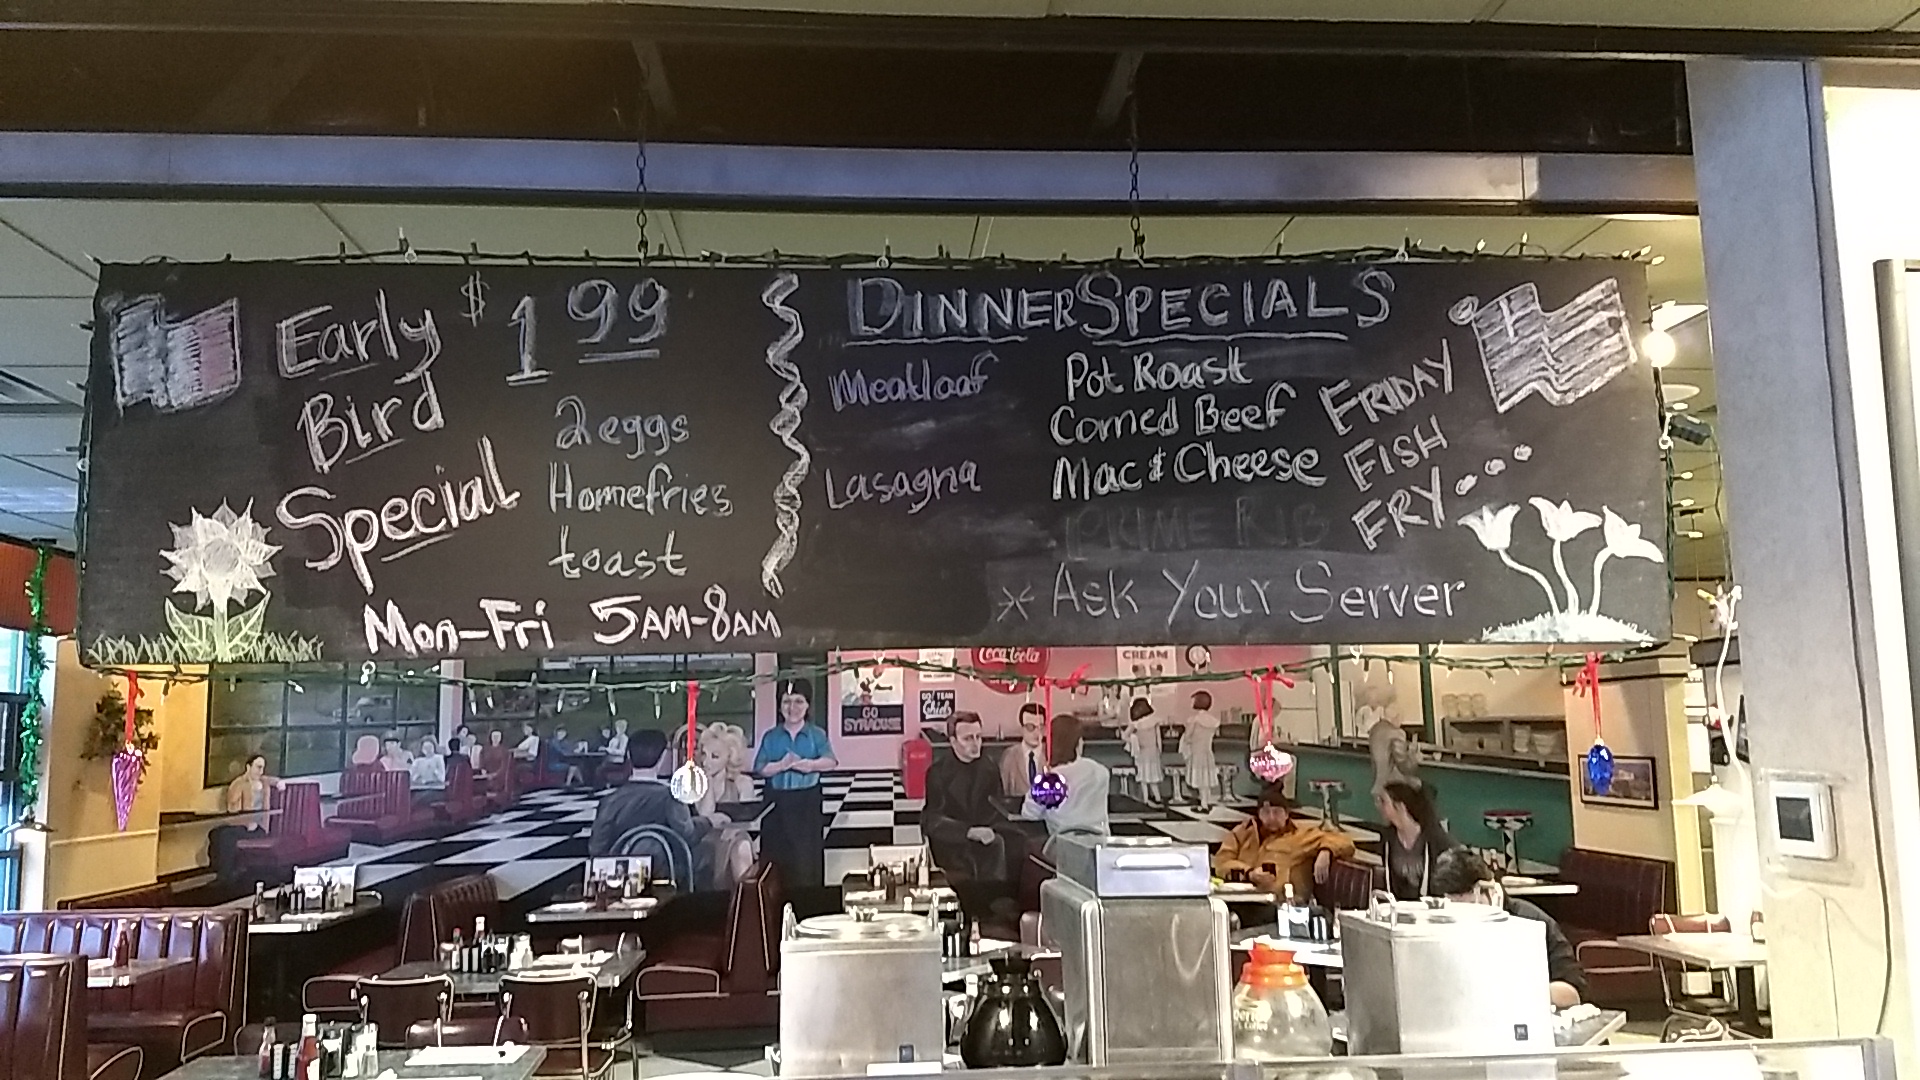 Early
Bird
Special
$1.99
2 eggs
Homefries
toast
Mon-Fri 5AM-8AM
DINNER SPECIALS
Meatloaf
Lasagna
Pot Roast
Corned Beef
Mac & Cheese
PRIME RIB
FRIDAY
FISH
FRY...
* Ask Your Server
Coca-Cola
CREAM
GO
SYRACUSE
GO TEAM
Chiefs